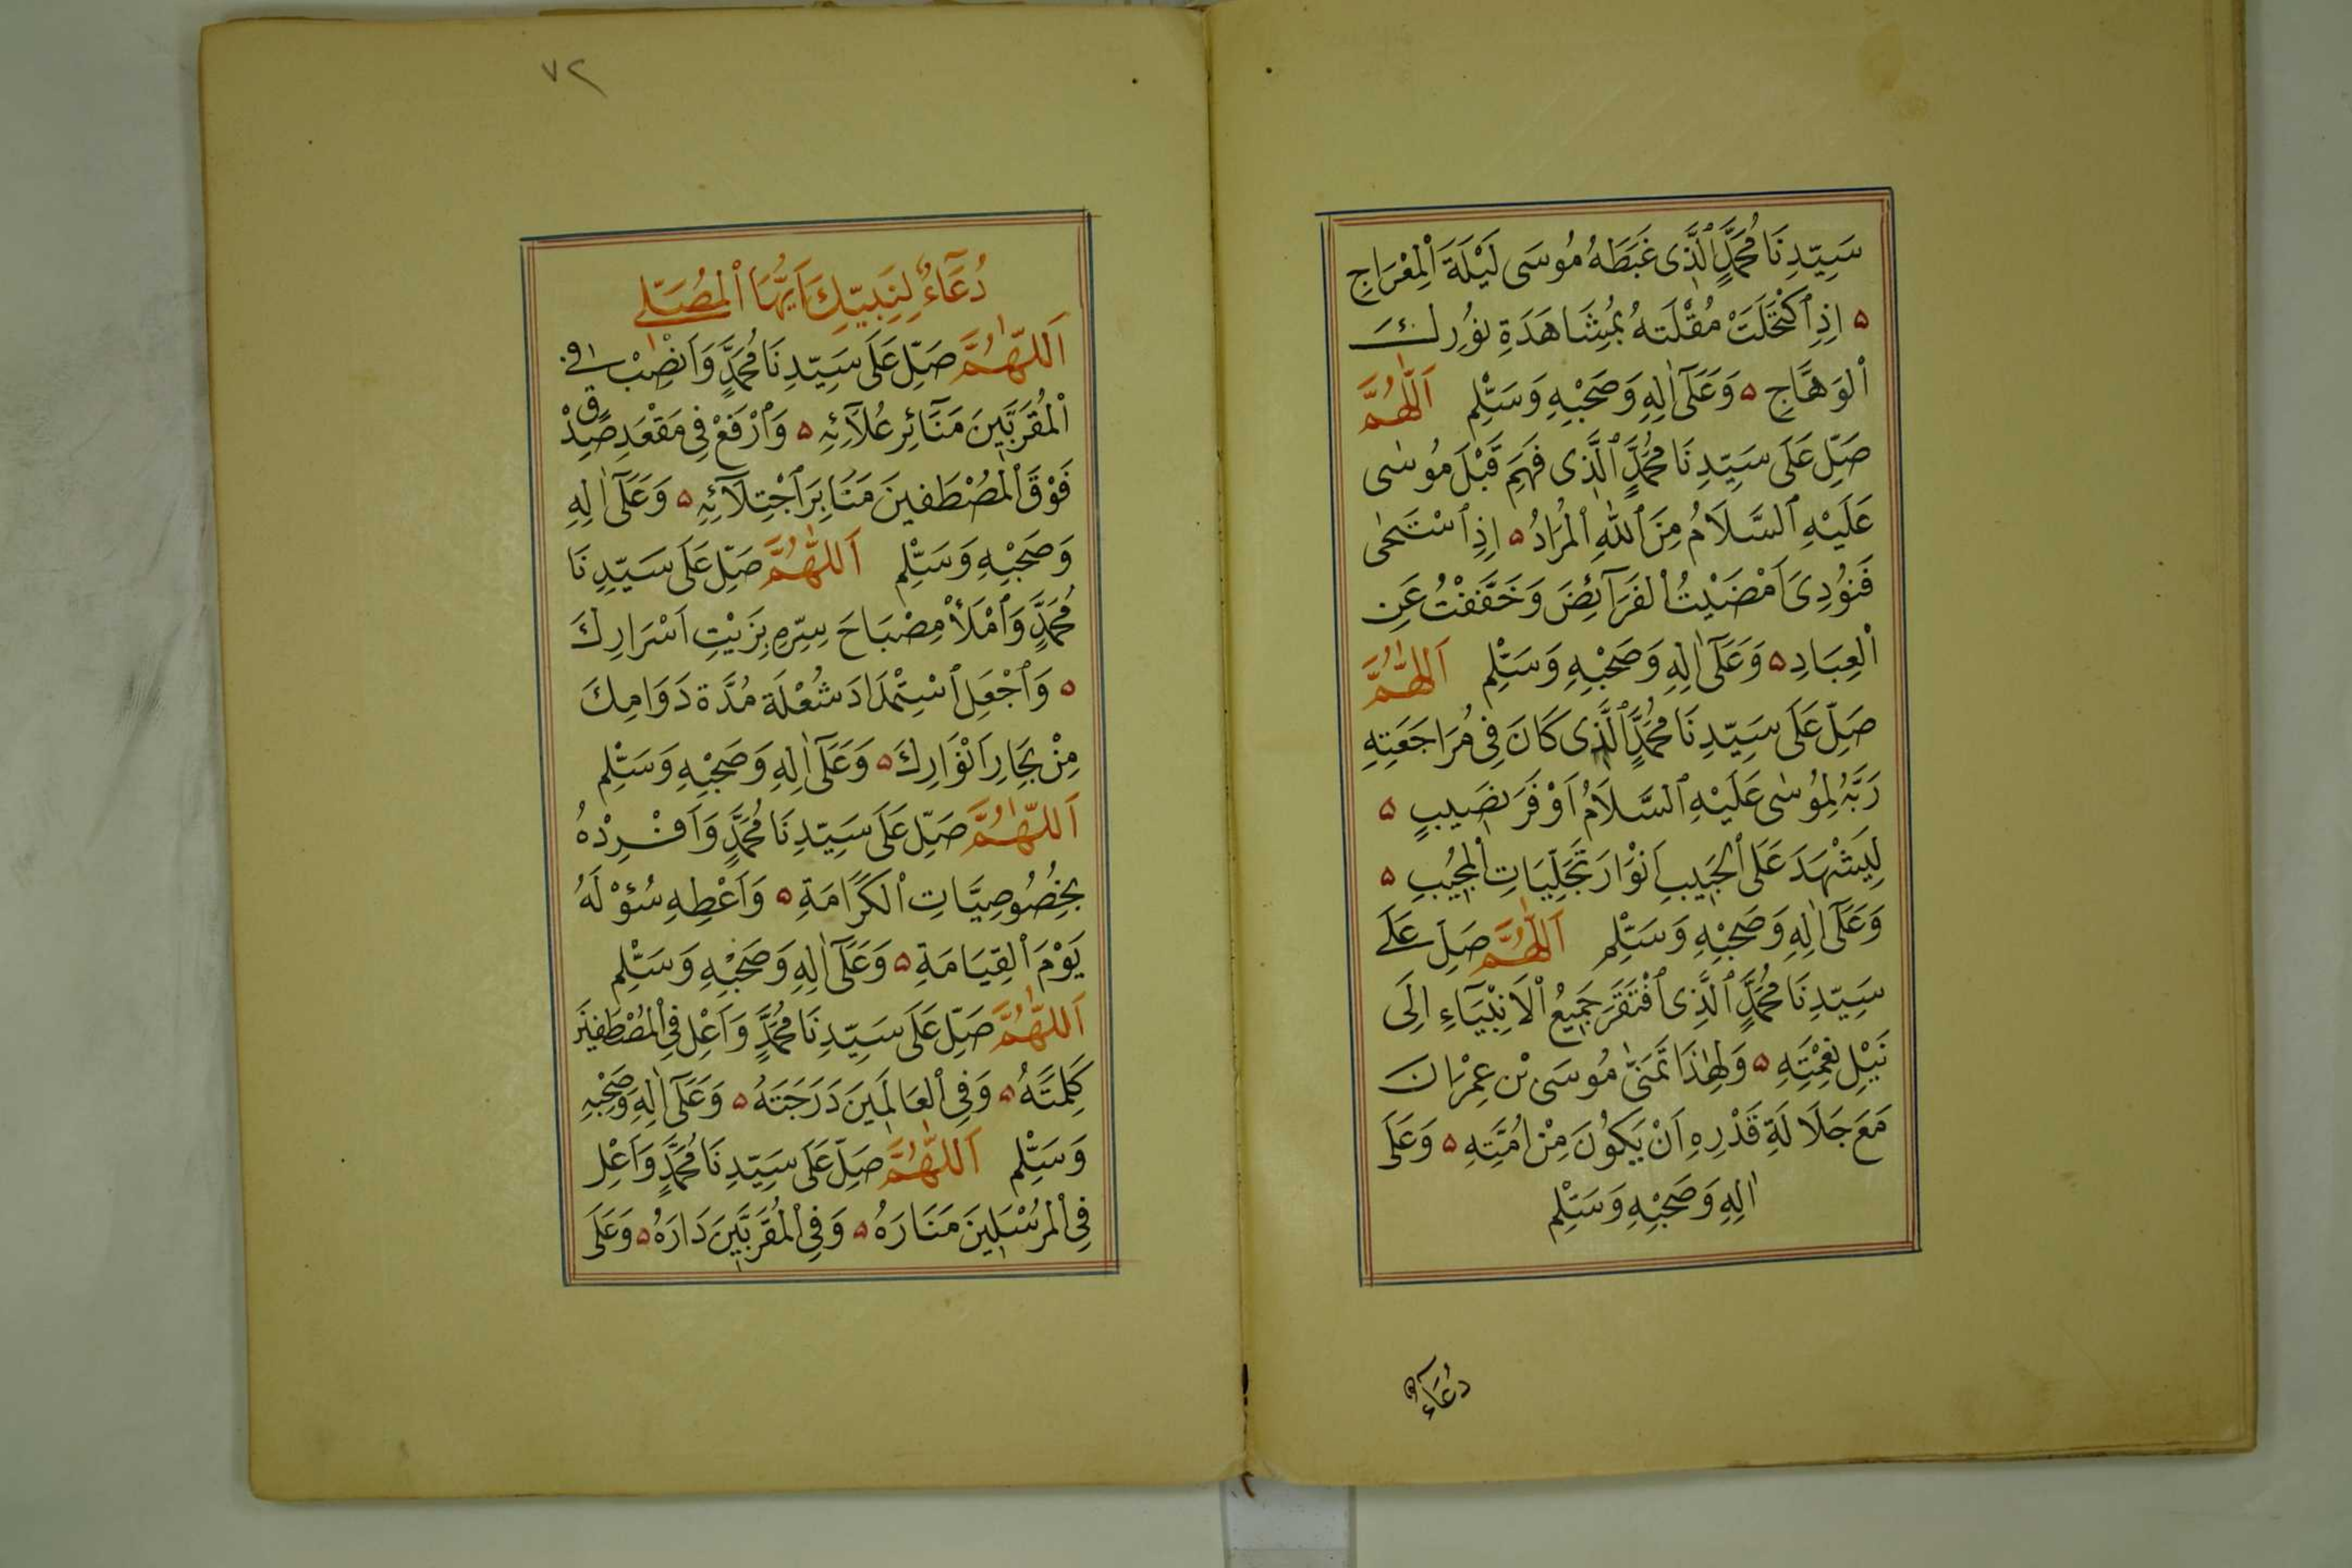 سَيِّدِنَا مُحَمَّدٍ ٱلَّذِى غَبَطَهُ مُوسَى لَيْلَةَ ٱلْمِعْرَاجِ
۵ اِذِ ٱكْتَحَلَتْ مُقْلَتَهُ بِمُشَاهَدَةِ نُورِكَ
ٱلْوَهَّاجِ ۵ وَعَلَىٰٓ اٰلِهِ وَصَحْبِهِ وَسَلِّمْ اَللّٰهُمَّ
صَلِّ عَلَى سَيِّدِنَا مُحَمَّدٍ ٱلَّذِى فَهِمَ قَبْلَ مُوسٰى
عَلَيْهِ ٱلسَّلَامُ مِنَ ٱللّٰهِ ٱلْمُرَادُ ۵ اِذِ ٱسْتَحٰى
فَنُودِىَ اَمْضَيْتُ ٱلْفَرَآئِضَ وَخَفَّفْتُ عَنِ
ٱلْعِبَادِ ۵ وَعَلَىٰٓ اٰلِهِ وَصَحْبِهِ وَسَلِّمْ اَللّٰهُمَّ
صَلِّ عَلَى سَيِّدِنَا مُحَمَّدٍ ٱلَّذِى كَانَ فِى مُرَاجَعَتِهِ
رَبَّهُ لِمُوسٰى عَلَيْهِ ٱلسَّلَامُ اَوْفَرَ نَصِيبٍ ۵
لِيَشْهَدَ عَلَى ٱلْحَبِيبِ اَنْوَارَ تَجَلِّيَاتِ ٱلْمُجِيبِ ۵
وَعَلَىٰٓ اٰلِهِ وَصَحْبِهِ وَسَلِّمْ اَللّٰهُمَّ صَلِّ عَلَى
سَيِّدِنَا مُحَمَّدٍ ٱلَّذِى ٱفْتَقَرَ جَمِيعُ ٱلْاَنْبِيَآءِ اِلَى
نَيْلِ نِعْمَتِهِ ۵ وَلِهٰذَا تَمَنّٰى مُوسَى بْنِ عِمْرَانَ
مَعَ جَلَالَةِ قَدْرِهِ اَنْ يَكُونَ مِنْ اُمَّتِهِ ۵ وَعَلَى
اٰلِهِ وَصَحْبِهِ وَسَلِّمْ
دُعَآءٌ
٧٢
دُعَآءٌ لِنَبِيِّكَ اَيُّهَا ٱلْمُصَلِّى
اَللّٰهُمَّ صَلِّ عَلَى سَيِّدِنَا مُحَمَّدٍ وَٱنْصِبْ فِى
ٱلْمُقَرَّبِينَ مَنَآئِرَ عُلَآئِهِ ۵ وَٱرْفَعْ فِى مَقْعَدِ صِدْقٍ
فَوْقَ ٱلْمُصْطَفِينَ مَنَابِرَ ٱجْتِلَآئِهِ ۵ وَعَلَىٰٓ اٰلِهِ
وَصَحْبِهِ وَسَلِّمْ اَللّٰهُمَّ صَلِّ عَلَى سَيِّدِنَا
مُحَمَّدٍ وَٱمْلَأْ مِصْبَاحَ سِرِّهِ بِزَيْتِ اَسْرَارِكَ
۵ وَٱجْعَلِ ٱسْتِمْدَادَ شُعْلَةَ مُدَّةَ دَوَامِكَ
مِنْ بِحَارِ اَنْوَارِكَ ۵ وَعَلَىٰٓ اٰلِهِ وَصَحْبِهِ وَسَلِّمْ
اَللّٰهُمَّ صَلِّ عَلَى سَيِّدِنَا مُحَمَّدٍ وَاَفْرِدْهُ
بِخُصُوصِيَّاتِ ٱلْكَرَامَةِ ۵ وَاَعْطِهِ سُؤْلَهُ
يَوْمَ ٱلْقِيَامَةِ ۵ وَعَلَىٰٓ اٰلِهِ وَصَحْبِهِ وَسَلِّمْ
اَللّٰهُمَّ صَلِّ عَلَى سَيِّدِنَا مُحَمَّدٍ وَاَعْلِ فِى ٱلْمُصْطَفِينَ
كَلِمَتَهُ ۵ وَفِى ٱلْعَالَمِينَ دَرَجَتَهُ ۵ وَعَلَىٰٓ اٰلِهِ وَصَحْبِهِ
وَسَلِّمْ اَللّٰهُمَّ صَلِّ عَلَى سَيِّدِنَا مُحَمَّدٍ وَاَعْلِ
فِى ٱلْمُرْسَلِينَ مَنَارَهُ ۵ وَفِى ٱلْمُقَرَّبِينَ دَارَهُ ۵ وَعَلَى